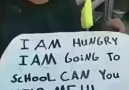 I AM HUNGRY
I AM GOING TO
SCHOOL CAN YOU
ME